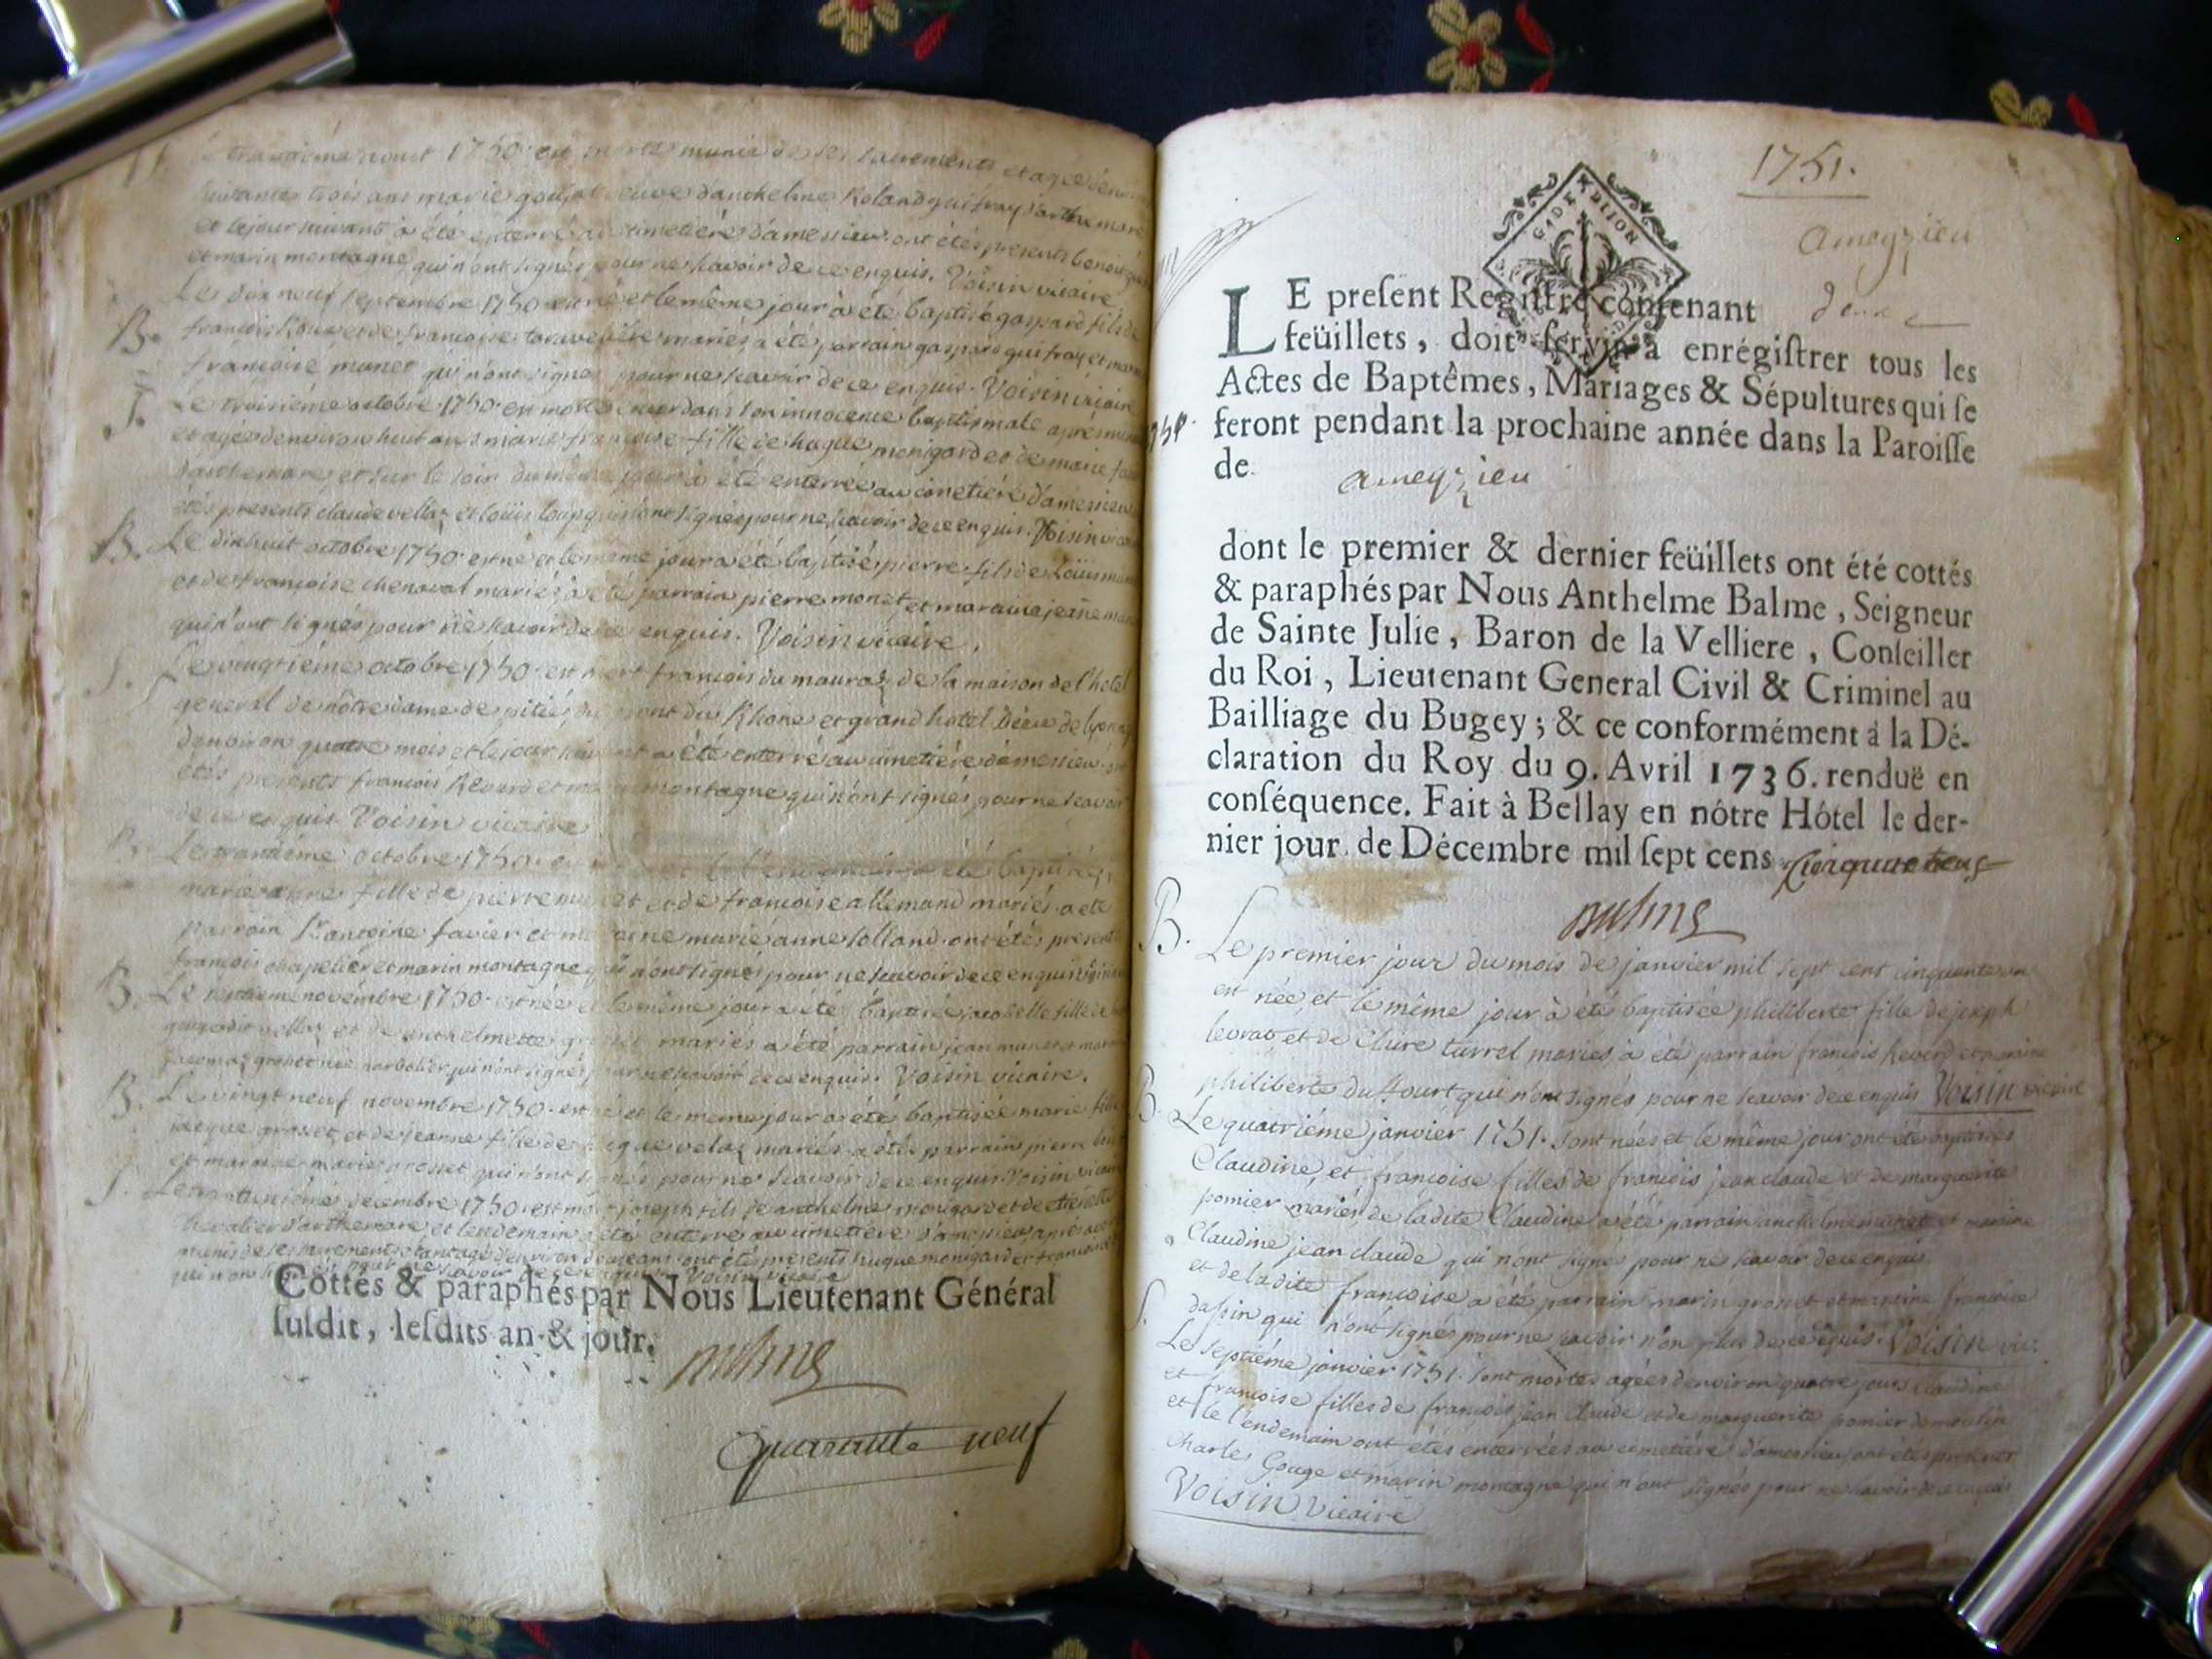 trantième aoust 1750 est morte munie de ses sacrements et agée
soixante trois ans marie goujat veuve d'anthelme Roland guifray d'arthemare
et le jour suivant à été enterré au cimetière d'amesieu ont étés presents benoit
et marin montagne qui n'ont signés pour ne scavoir de ce enquis. Voisin vicaire
B. Le dix neuf septembre 1750 est né et le même jour à été baptisé gaspard fils de
françois Roux et de françoise mariés à été parrain gaspard guifray et
françoise munet qui n'ont signés pour ne scavoir de ce enquis. Voisin vicaire
S. Le troisième octobre 1750 est morte dans son innocence baptismale
et agée d'environ huit ans marie françoise fille de hugue monigard et de marie
d'arthemare et sur le soir du même jour à été enterrée au cimetière d'amesieu
étés presents claude vellaz et loüis loup qui n'ont signés pour ne scavoir de ce enquis. Voisin
B. Le dixhuit octobre 1750 est né et le même jour à été baptisé pierre fils de Loüis
et de françoise chenaval mariés à été parrain pierre monet et maraine jeanne
qui n'ont signés pour ne scavoir de ce enquis. Voisin vicaire.
S. Le vingtième octobre 1750 est mort françois du mauraz de la maison de l'hotel
general de nôtre dame de pitié du pont du Rhone et grand hotel Dieu de lyon
d'environ quatre mois et le jour suivant à été enterré au cimetière d'amesieu
étés presents françois Reverd et marin montagne qui n'ont signés pour ne scavoir
de ce enquis Voisin vicaire
B. Le trantième octobre 1750 été baptisée
marie anne fille de pierre et de françoise allemand mariés à été
parrain antoine favier et maraine marie anne rolland ont étés presents
françois chapelier et marin montagne qui n'ont signés pour ne scavoir de ce enquis
B. Le septième novembre 1750 est née et le même jour à été baptisée fille de
vellaz et de anthelmette mariés à été parrain jean munet et
qui n'ont signés pour ne scavoir de ce enquis. Voisin vicaire.
B. Le vingt neuf novembre 1750 est né et le même jour à été baptisée marie fille
jacque grosset et de jeanne fille de jacque velaz mariés à été parrain pierre
et maraine marie grosset qui n'ont signés pour ne scavoir de ce enquis. Voisin vicaire
S. Le trantunième décembre 1750 est mort joseph fils de anthelme monigard et de
chevalier d'arthemare et lendemain à été enterré au cimetière d'amesieu après avoir
munis de ses sacrements agé d'environ ans ont étés presents hugue monigard et françois
qui n'ont signés pour ne scavoir de ce enquis Voisin vicaire
Cottés & paraphés par Nous Lieutenant Général
susdit, lesdits an & jour.
Balme
Quarante neuf
1751.
GEN DE DIJON
ameyzieu
LE present Registre contenant deux
feüillets, doit servir à enrégistrer tous les
Actes de Baptêmes, Mariages & Sépultures qui se
feront pendant la prochaine année dans la Paroisse
de ameyzieu
dont le premier & dernier feüillets ont été cottés
& paraphés par Nous Anthelme Balme, Seigneur
de Sainte Julie, Baron de la Velliere, Conseiller
du Roi, Lieutenant General Civil & Criminel au
Bailliage du Bugey; & ce conformément à la Dé-
claration du Roy du 9. Avril 1736. renduë en
conséquence. Fait à Bellay en nôtre Hôtel le der-
nier jour de Décembre mil sept cens Cinquante
Balme
B. Le premier jour du mois de janvier mil sept cent cinquante un
est née et le même jour à été baptisée philiberte fille de joseph
levrat et de Claire turrel mariés à été parrain françois Reverd et maraine
philiberte qui n'ont signés pour ne scavoir de ce enquis Voisin vicaire
B. Le quatrième janvier 1751. sont nées et le même jour ont été baptisées
Claudine, et françoise filles de françois jean claude et de marguerite
pomier mariés, de ladite Claudine à été parrain anthelme monet et maraine
Claudine jean claude qui n'ont signé pour ne scavoir de ce enquis
et de ladite françoise à été parrain marin grosset et maraine francoise
dassin qui n'ont signés pour ne scavoir n'on plus de ce enquis. Voisin vic.
S. Le septième janvier 1751. sont mortes agées d'environ quatre jours Claudine
et françoise filles de françois jean Claude et de marguerite pomier
et le l'endemain ont étés enterrées au cimetière d'amesieu ont étés presents
Charles Gouge et marin montagne qui n'ont signés pour ne scavoir de ce enquis
Voisin Vicaire